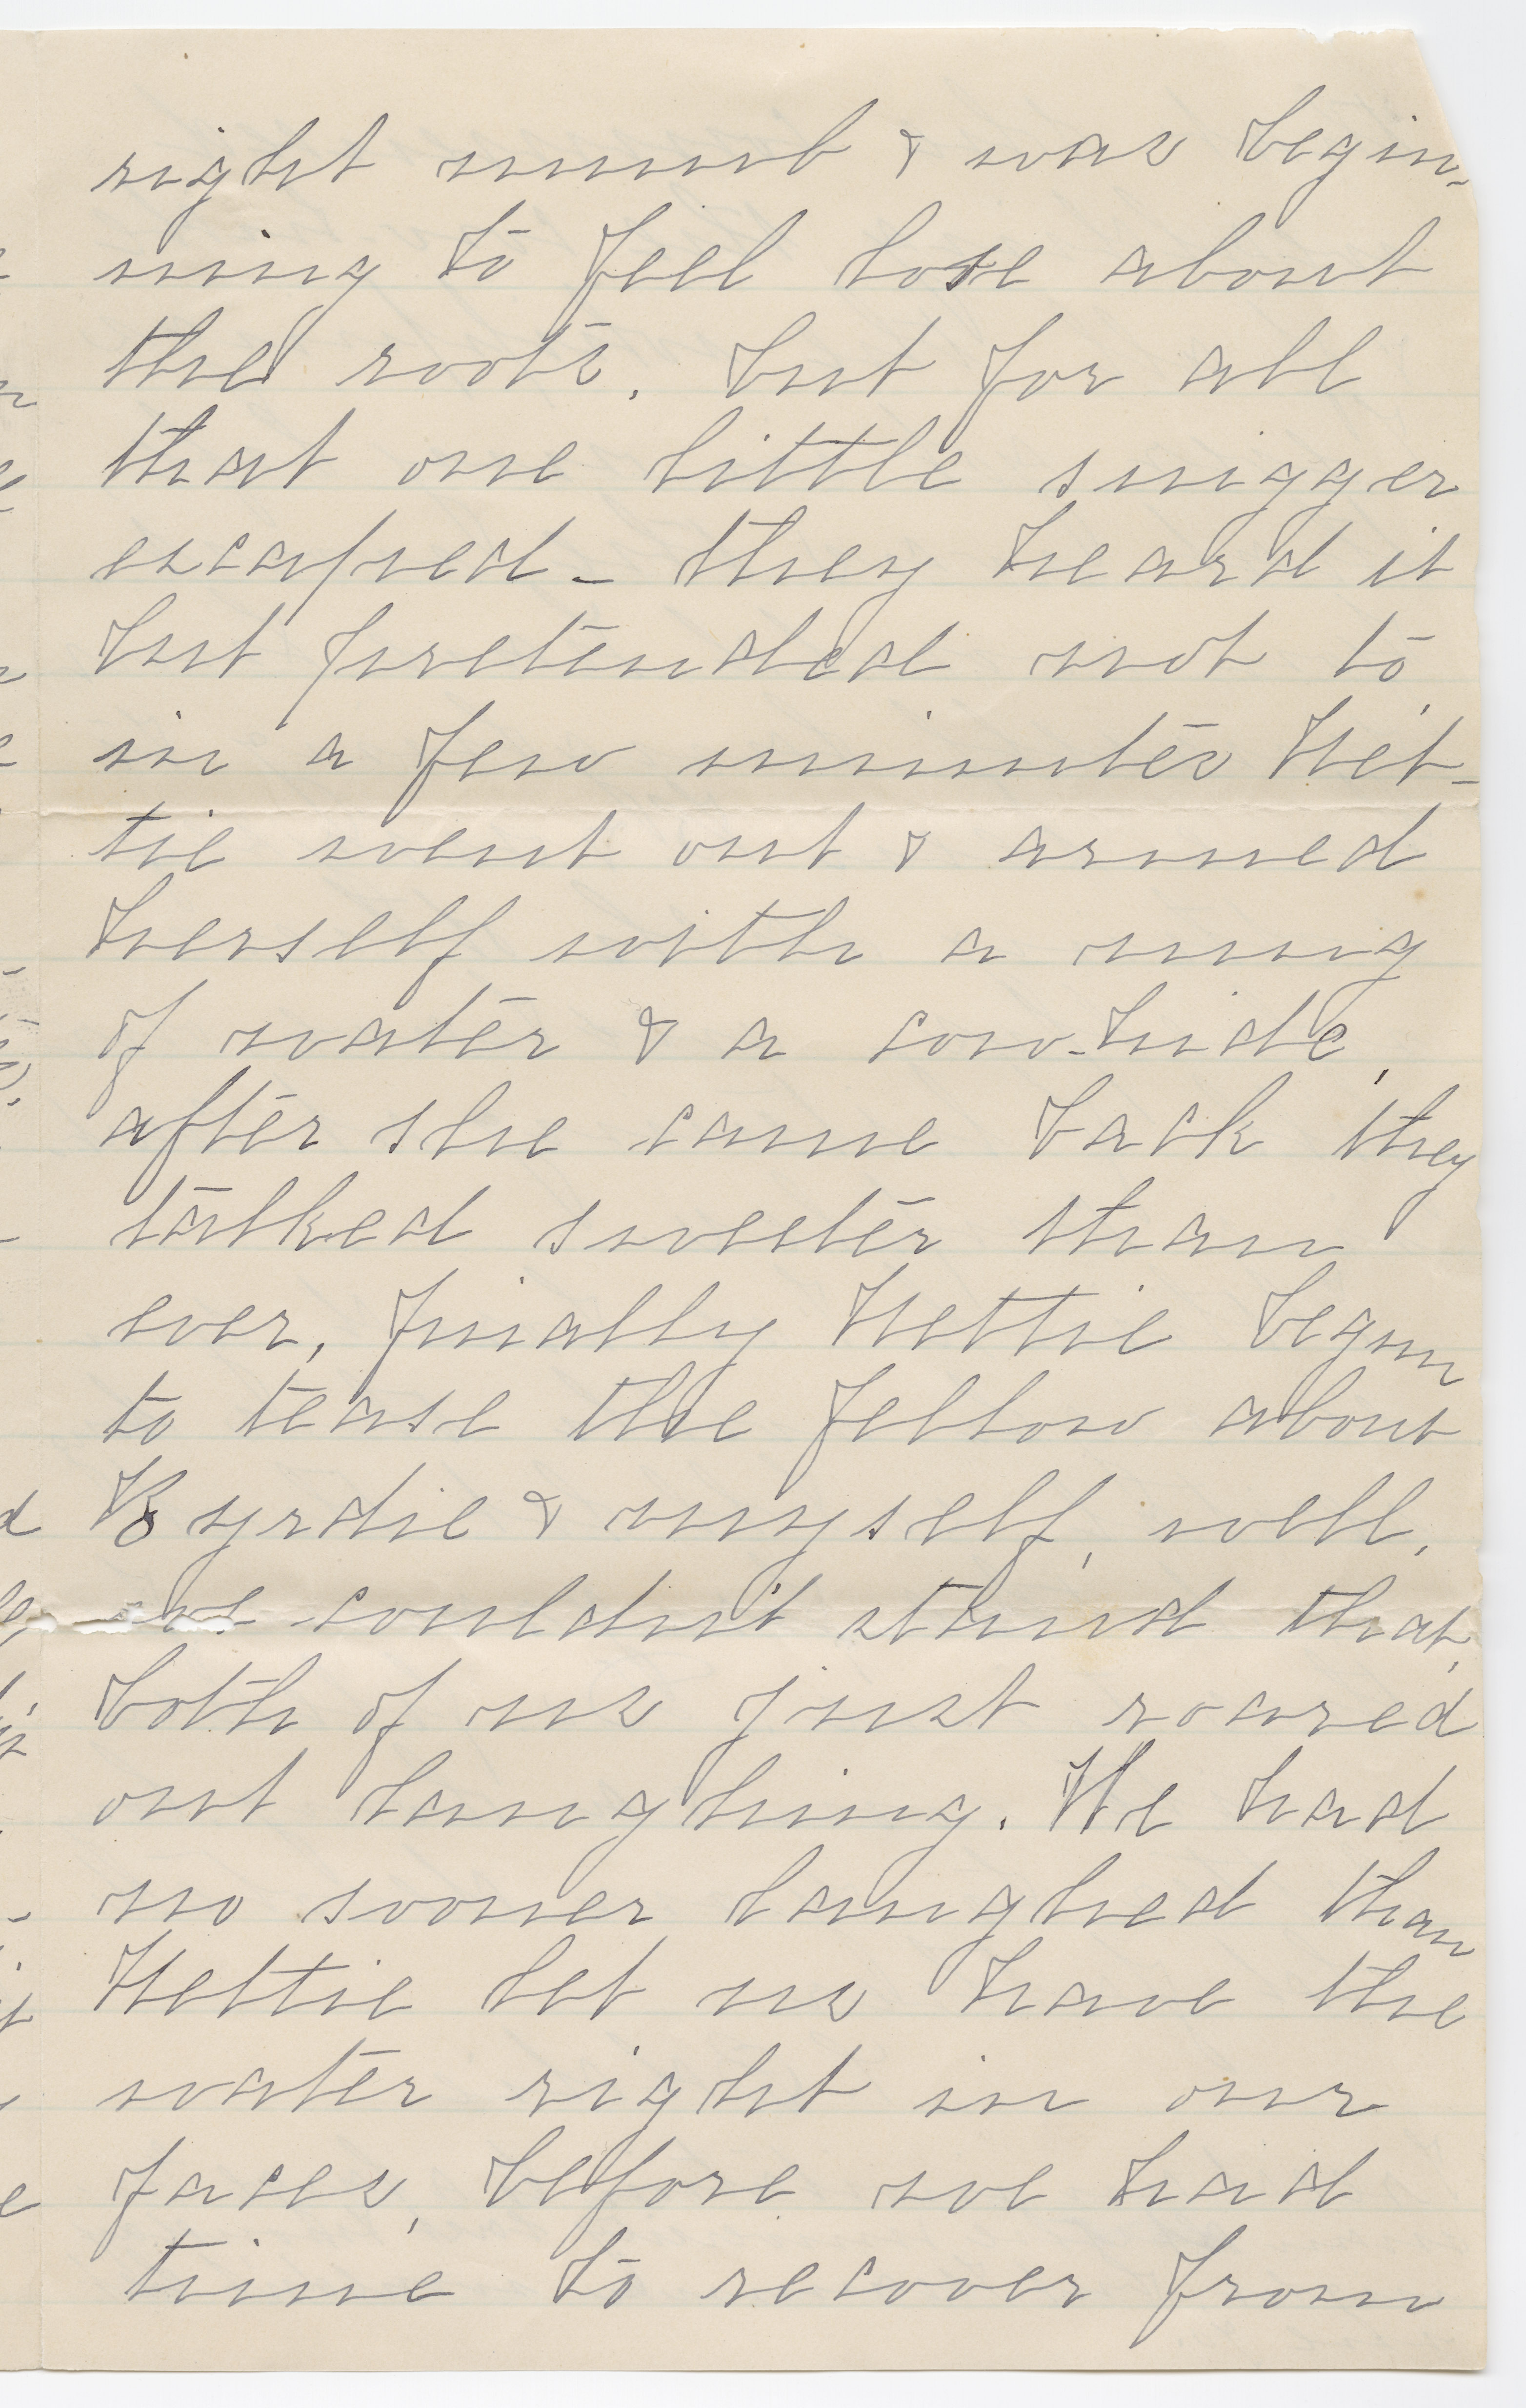 right numb & was begin-
ning to feel lose about
the roots. but for all
that one little snigger
escaped - they heard it
but pretended not to,
in a few minutes Het-
tie went out & armed
herself with a mug
of water & a cow-hide,
after she came back they
talked sweeter than
ever, finally Hettie begun
to tease the fellow about
Byrdie & myself, well,
we couldn't stand that,
both of us just roared
out laughing. We had
no sooner laughed than
Hettie let us have the
water right in our
faces, before we had
time to recover from